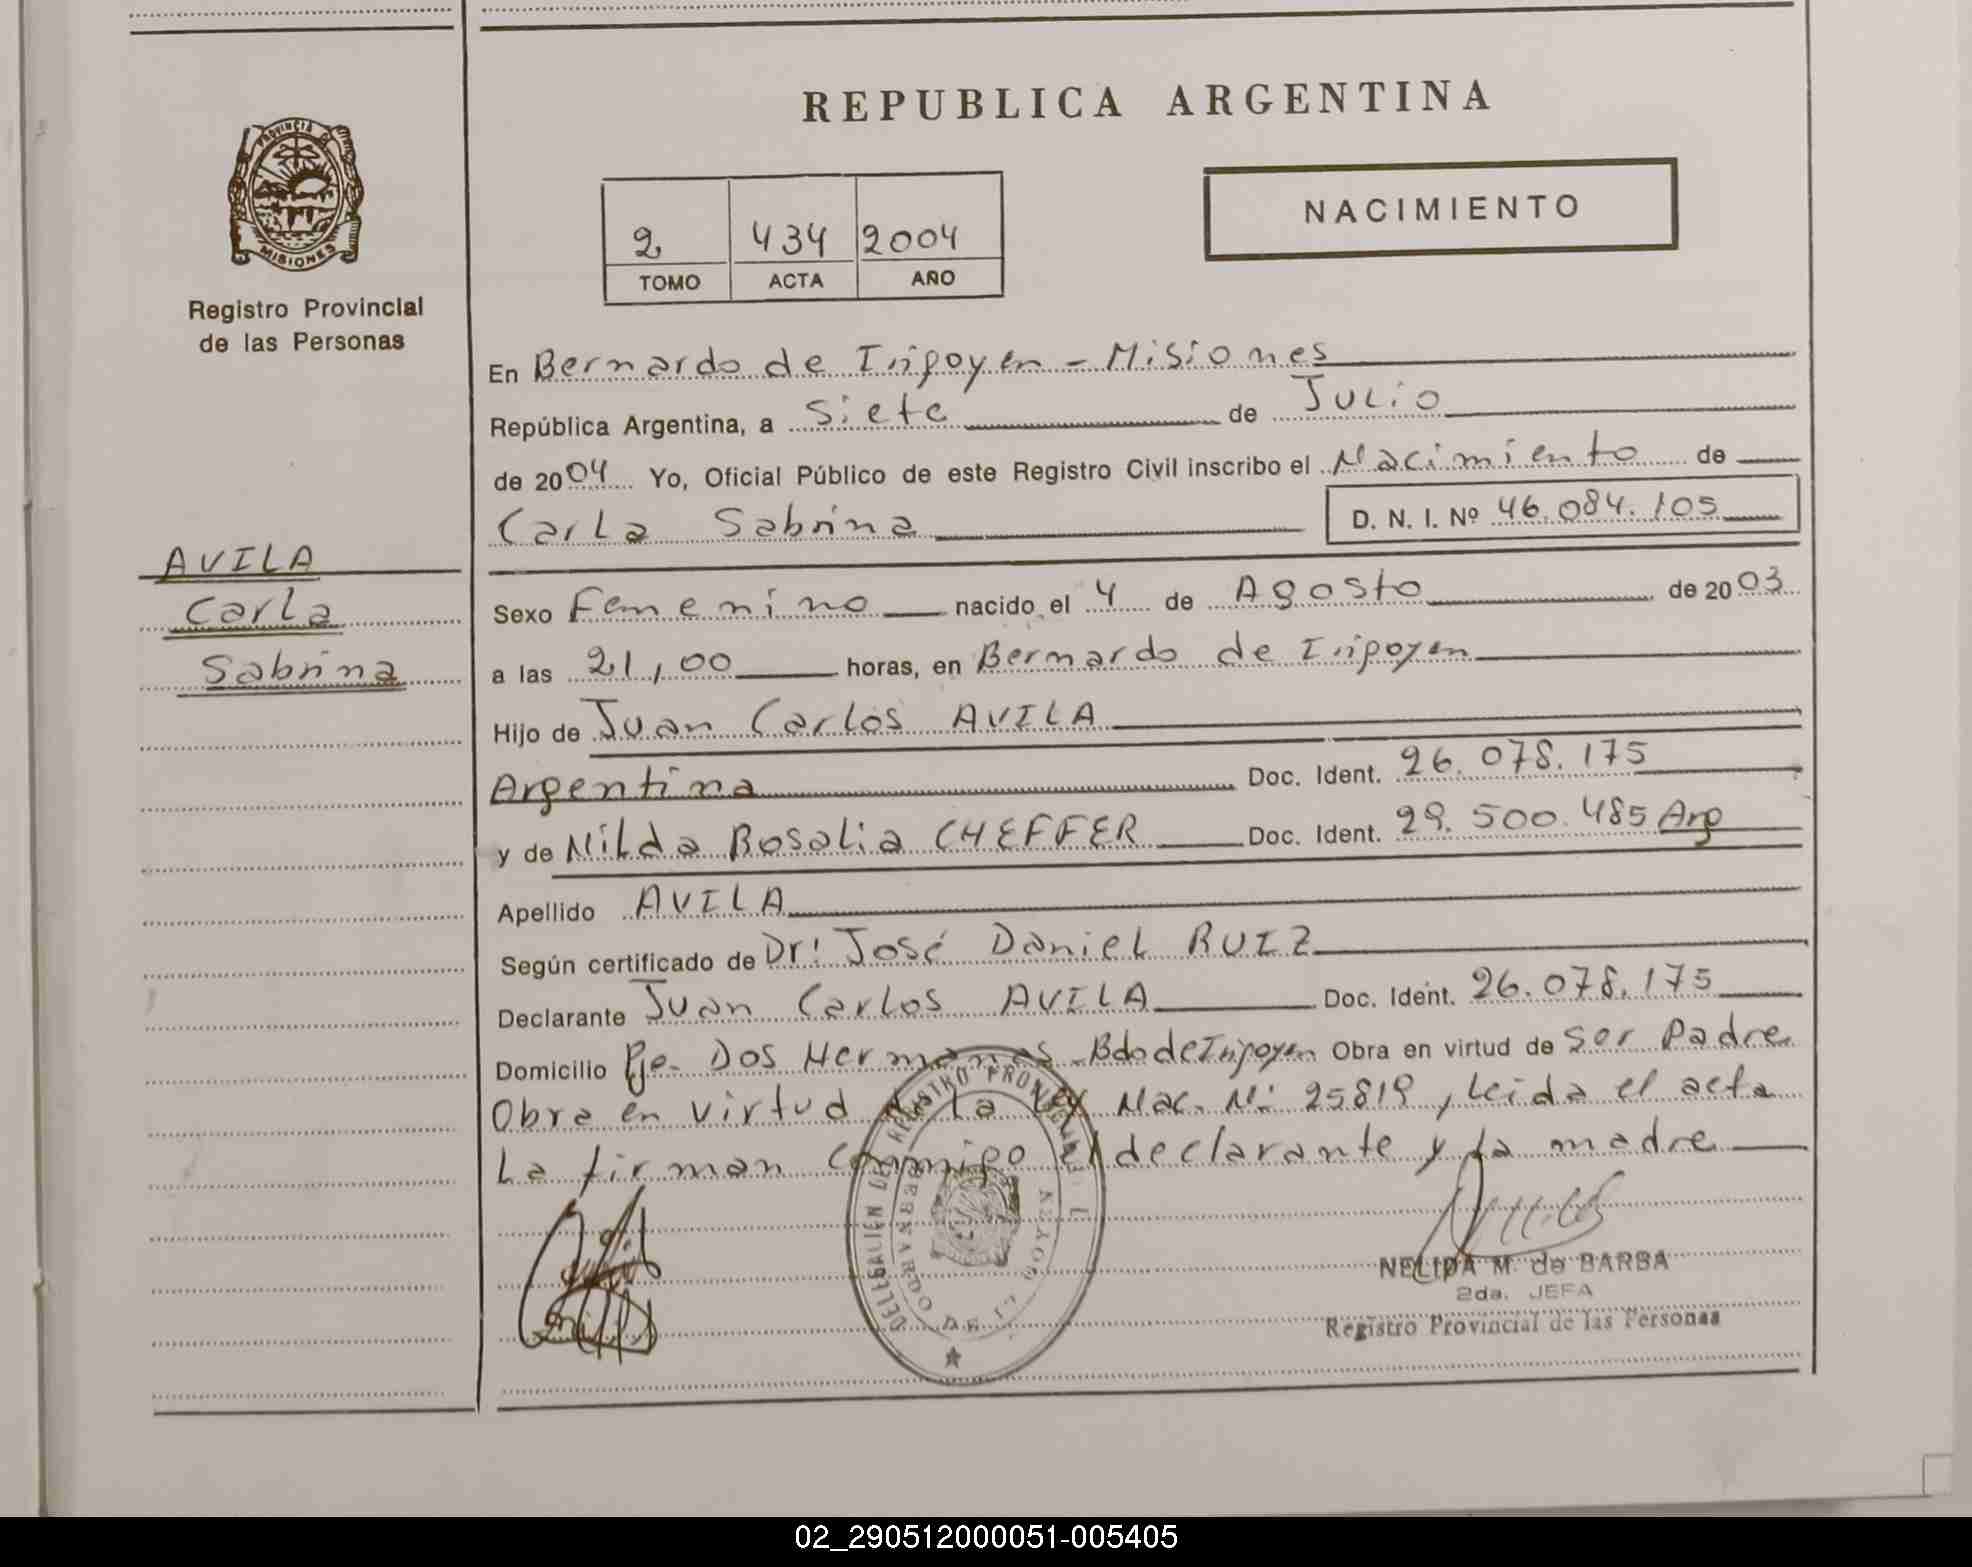 REPUBLICA ARGENTINA
PROVINCIA DE
MISIONES
Registro Provincial
de las Personas
2 434 2004
TOMO ACTA AÑO
NACIMIENTO
En Bernardo de Irigoyen - Misiones
República Argentina, a Siete de Julio
de 2004 Yo, Oficial Público de este Registro Civil inscribo el Nacimiento de
Carla Sabrina D. N. I. Nº 46.084.105
AVILA
Carla
Sabrina
Sexo Femenino nacido el 4 de Agosto de 2003
a las 21,00 horas, en Bernardo de Irigoyen
Hijo de Juan Carlos AVILA
Argentina Doc. Ident. 26.078.175
y de Nilda Rosalia CHEFFER Doc. Ident. 29.500.485 Arg
Apellido AVILA
Según certificado de Dr: José Daniel RUIZ
Declarante Juan Carlos AVILA Doc. Ident. 26.078.175
Domicilio Pje. Dos Hermanas - Bdo de Irigoyen Obra en virtud de Ser Padre
Obra en virtud de la Ley Nac. Nº 25819, Leida el acta
La firman conmigo el declarante y la madre
NELIDA M. de BARBA
2da. JEFA
Registro Provincial de las Personas
02_290512000051-005405